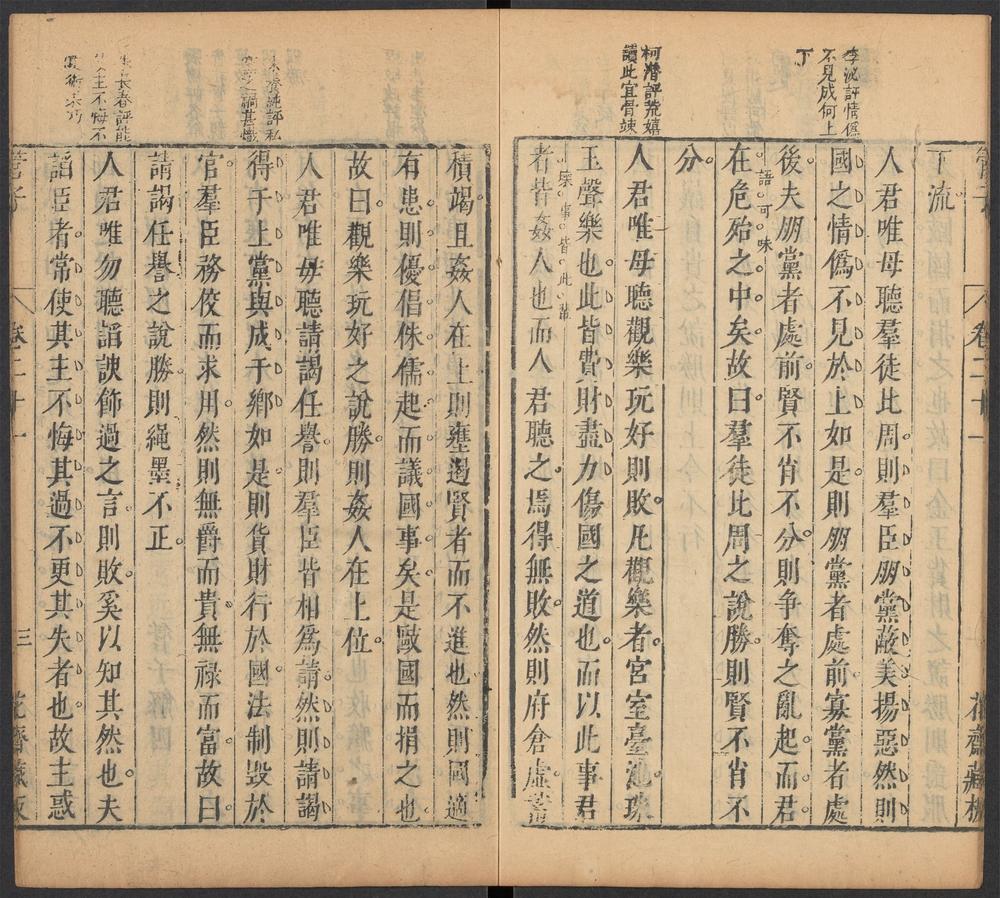 管子
卷二十一
花齋藏板
李泌評情僞
不見成何上
下
下流
人君唯毋聽羣徒比周則羣臣朋黨蔽美揚惡然則
國之情僞不見於上如是則朋黨者處前寡黨者處
後夫朋黨者處前賢不肖不分則争奪之亂起而君
在危殆之中矣故曰羣徒比周之說勝則賢不肖不
語可味
分
柯潛評荒嬉
讀此宜骨竦
人君唯毋聽觀樂玩好則敗凡觀樂者宮室臺池珠
玉聲樂也此皆費財盡力傷國之道也而以此事君
者皆姦人也而人君聽之焉得無敗然則府倉虛蓄
事皆此
積竭且姦人在上則壅遏賢者而不進也然則國適
有患則優倡侏儒起而議國事矣是敺國而捐之也
故曰觀樂玩好之說勝則姦人在上位
人君唯毋聽請謁任譽則羣臣皆相爲請然則請謁
得于上黨與成于鄉如是則貨財行於國法制毀於
官羣臣務佼而求用然則無爵而貴無祿而富故曰
請謁任譽之說勝則繩墨不正
評私
禍甚熾
人君唯勿聽謟諛飾過之言則敗奚以知其然也夫
謟臣者常使其主不悔其過不更其失者也故主惑
長春評能
主不悔不
術
管子
卷二十一
三
花齋藏板